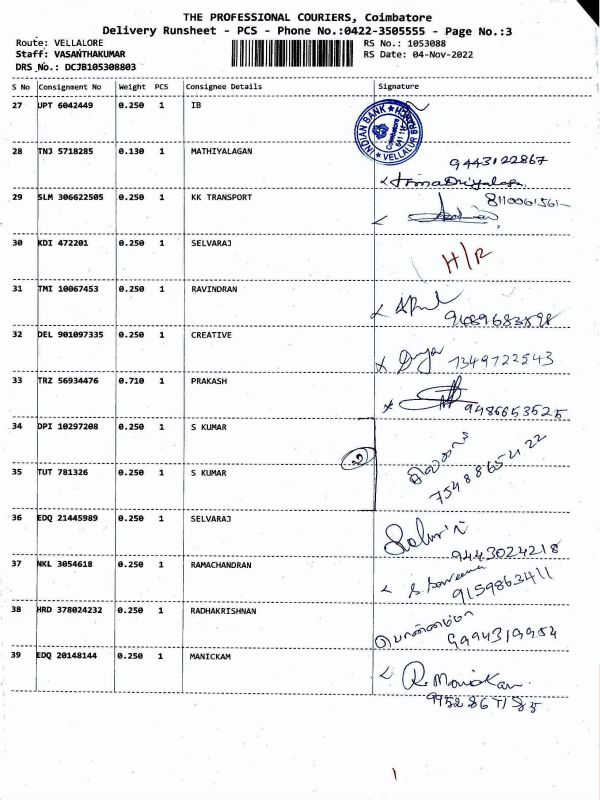 THE PROFESSIONAL COURIERS, Coimbatore
Delivery Runsheet - PCS - Phone No.:0422-3505555 - Page No.:3
Route: VELLALORE RS No.: 1053088
Staff: VASANTHAKUMAR RS Date: 04-Nov-2022
DRS_No.: DCJB105308803
S No Consignment No Weight PCS Consignee Details Signature
27 UPT 6042449 0.250 1 IB
INDIAN BANK VELLALUR BRANCH Coimbatore
28 TNJ 5718285 0.130 1 MATHIYALAGAN 9443122867
29 SLM 306622505 0.250 1 KK TRANSPORT 8110061561
30 KDI 472201 0.250 1 SELVARAJ H/R
31 TMI 10067453 0.250 1 RAVINDRAN
9489683898
32 DEL 901097335 0.250 1 CREATIVE
7349722543
33 TRZ 56934476 0.710 1 PRAKASH
9486653525
34 DPI 10297208 0.250 1 S KUMAR
2
35 TUT 781326 0.250 1 S KUMAR 7548865422
36 EDQ 21445989 0.250 1 SELVARAJ
9443024218
37 NKL 3054618 0.250 1 RAMACHANDRAN
9159863411
38 HRD 378024232 0.250 1 RADHAKRISHNAN
9994319954
39 EDQ 20148144 0.250 1 MANICKAM R. Manickam